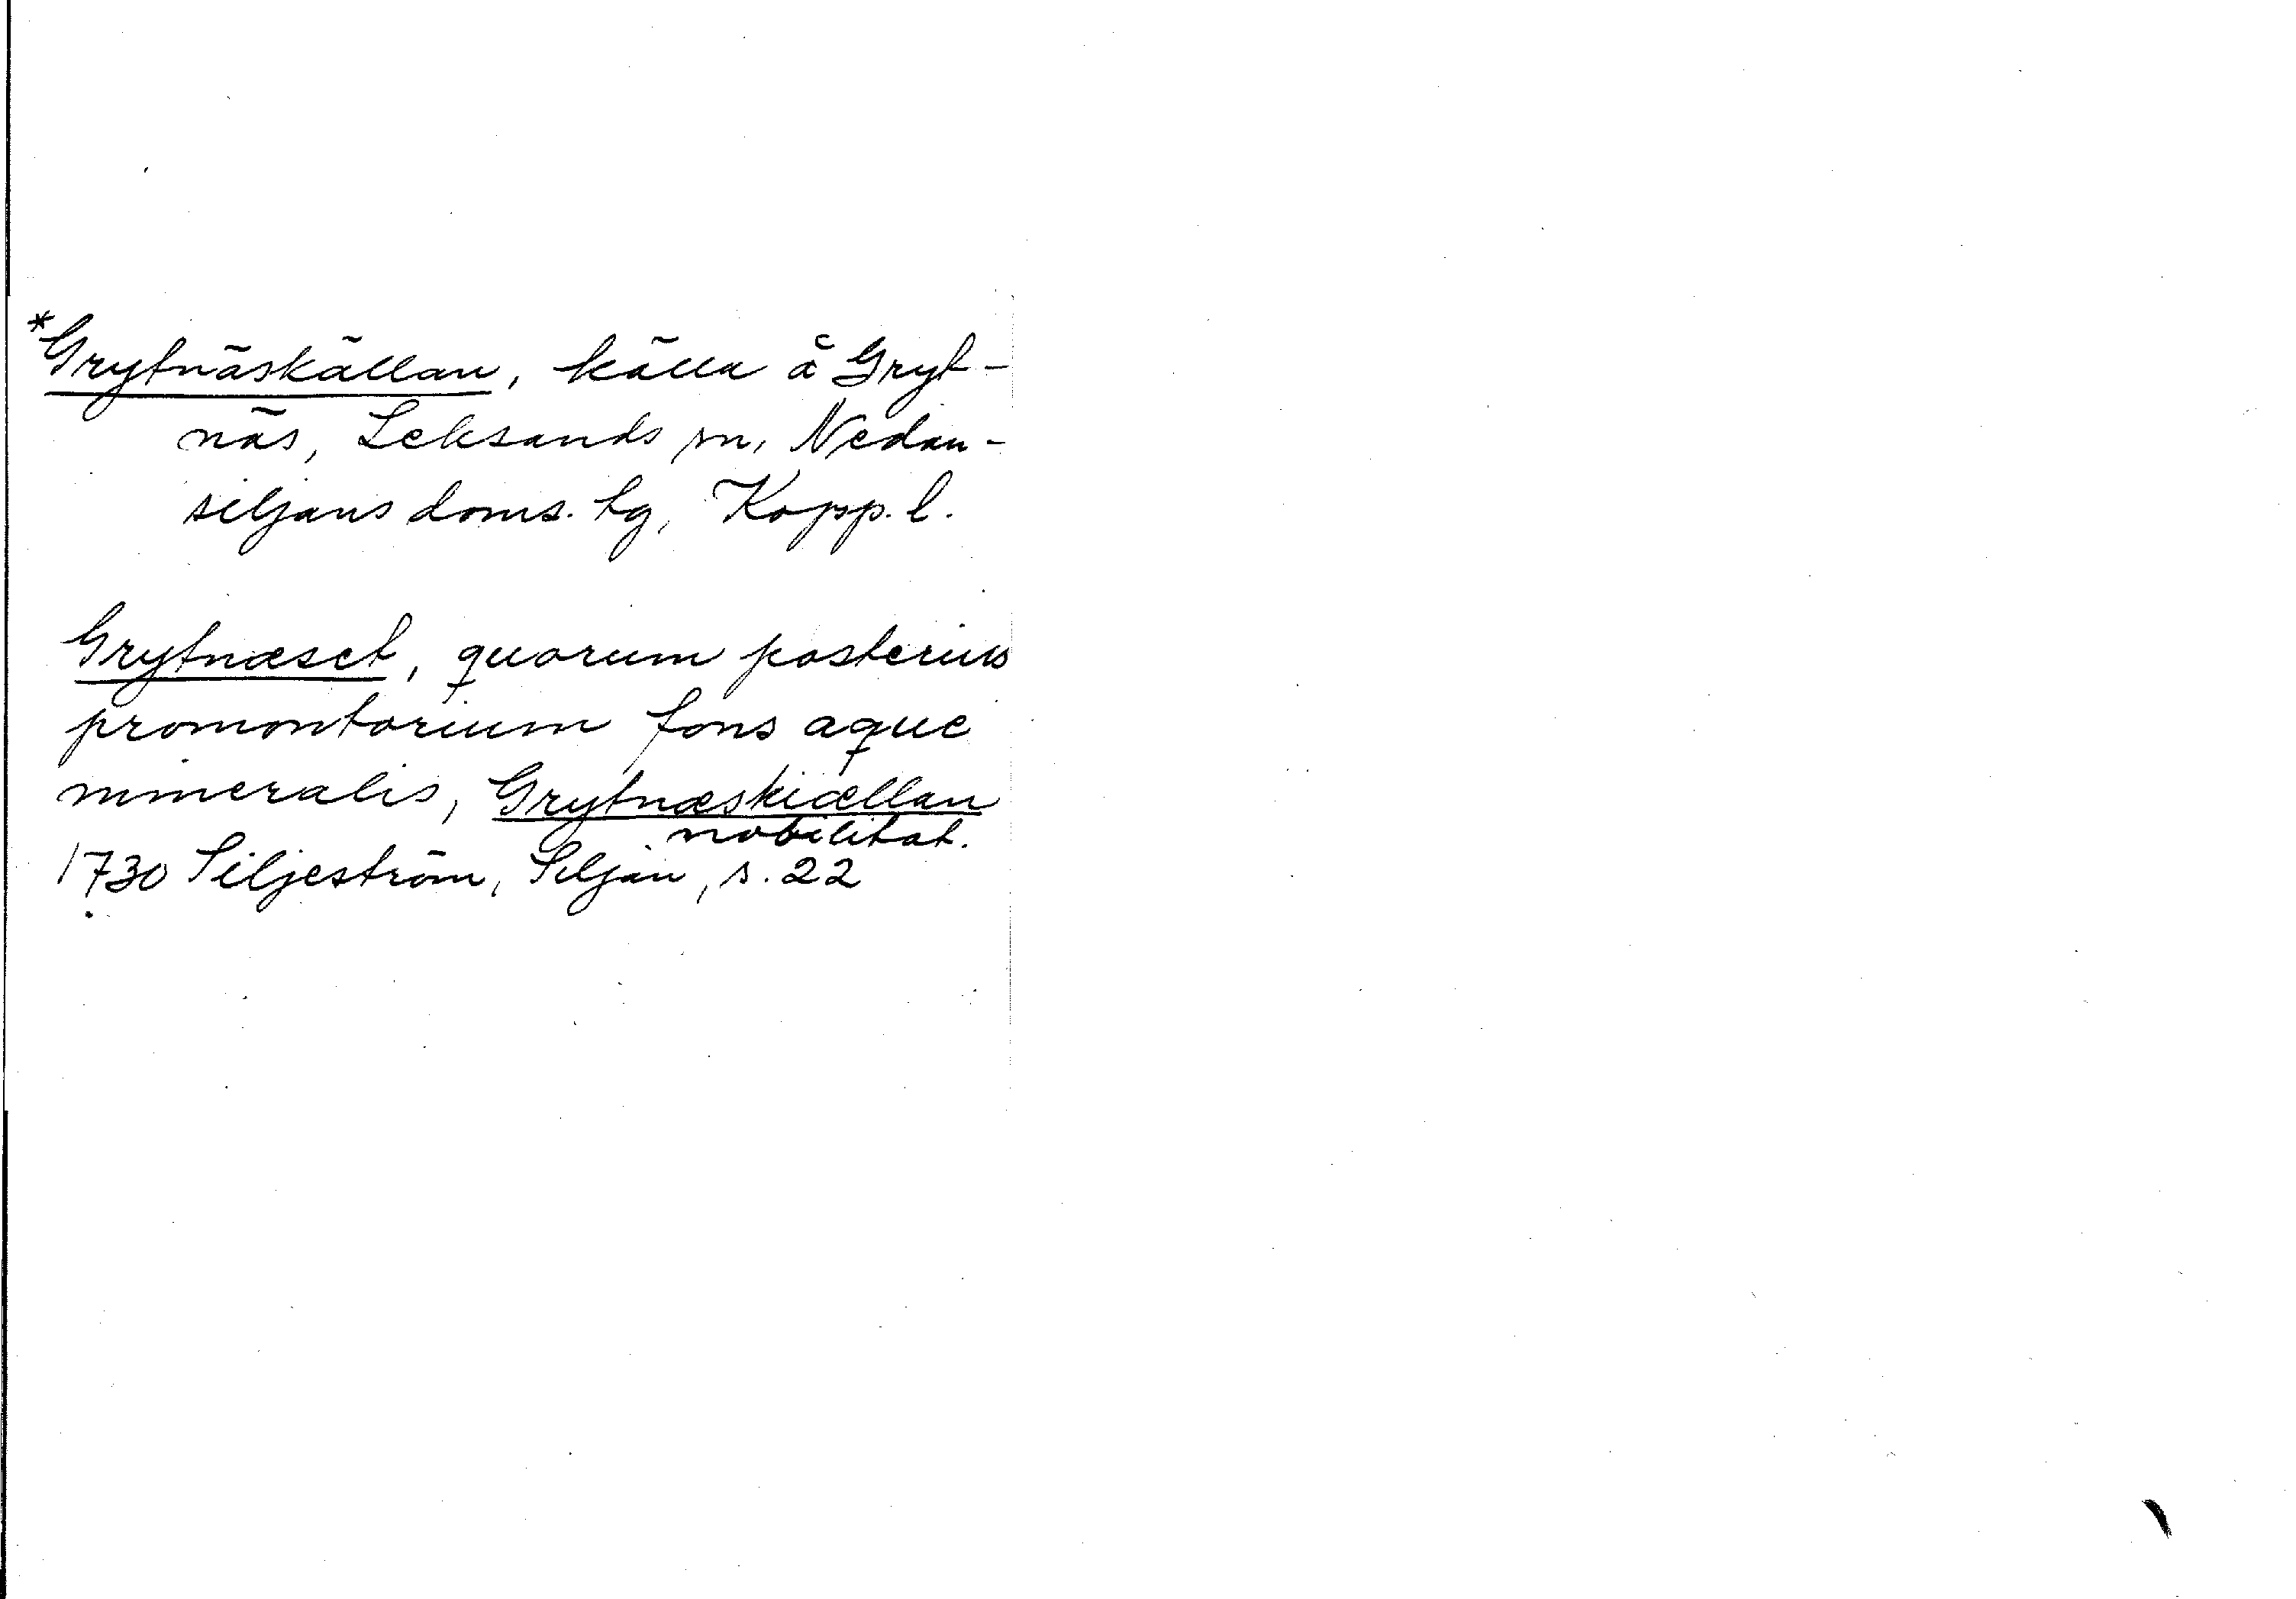 *Grytnäskällan, källa å Gryt-
näs, Leksands sn, Nedan-
siljans doms. tg, Kopp. l.
Grytnæset, quorum posterius
promontorium fons aque
mineralis, Grytnæskiællan
nobilitat.
1730 Siljeström, Siljan, s. 22